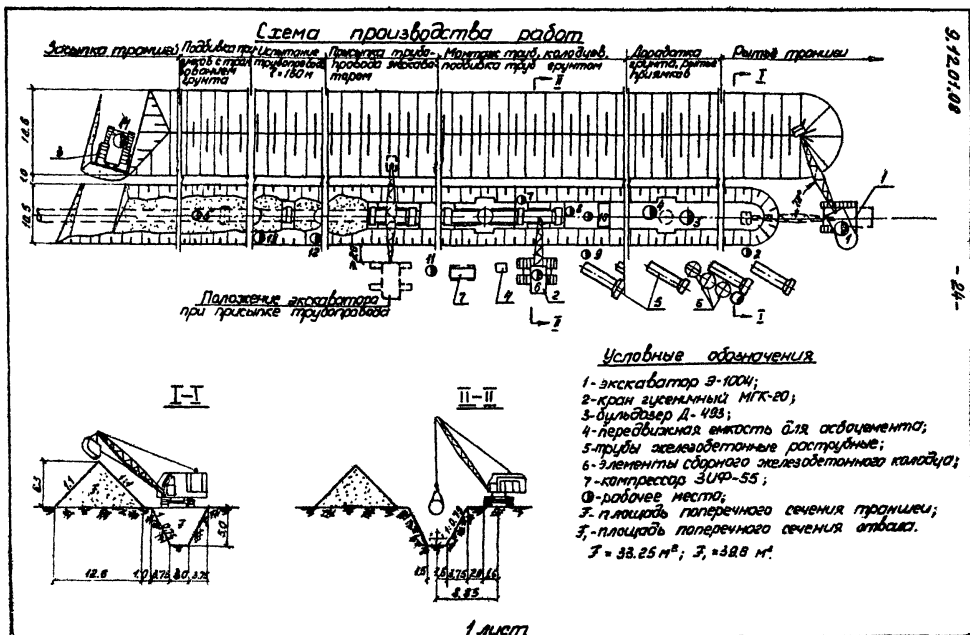 Схема производства работ
Засыпка траншей
Подбивка при-
ямков с трам-
бованием
грунта
Испытание
трубопровода
l = 150 м
Присыпка трубо-
провода экскава-
тором
Монтаж труб, колодцев,
подбивка труб грунтом
Доработка
грунта, рытье
приямков
Рытье траншеи
9.12.01.08
- 24 -
II
I
12.6
1.0
10.5
3
1
7
8
10
4
3
1
13
12
11
9
2
7
4
6
2
5
6
II
I
Положение экскаватора
при присыпке трубопровода
Условные обозначения
1 - экскаватор Э-1004;
2 - кран гусеничный МГК-20;
3 - бульдозер Д-493;
4 - передвижная емкость для асбоцемента;
5 - трубы железобетонные раструбные;
6 - элементы сборного железобетонного колодца;
7 - компрессор ЗИФ-55;
- рабочее место;
F - площадь поперечного сечения траншеи;
F₁ - площадь поперечного сечения отвала.
F = 33.25 м²; F₁ = 39.8 м².
I-I
6.3
1:1
1:1
5.0
12.6
1.0
3.75
3.0
3.75
II-II
1.5
1.5
3.75
8.85
1 лист